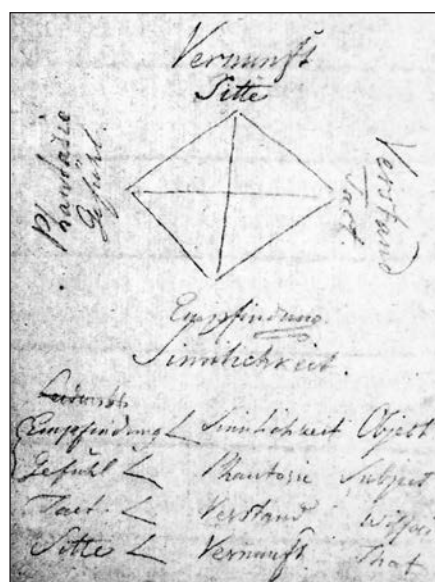 Vernunft
Sitte
Phantasie
Gefühl.
Verstand
Tact.
Empfindung.
Sinnlichkeit.
Empfindung < Sinnlichkeit Object
Gefühl < Phantasie Subject
Tact. < Verstand
Sitte < Vernunft. That